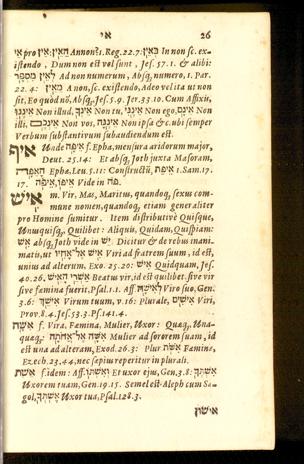 אי 26
אי pro אין: אין, האין Annon? 1. Reg. 22.7: באין In non sc. ex-
istendo, Dum non est vel sunt, Jes. 57. 1. & alibi:
לאין מספר Ad non numerum, Absq, numero, 1. Par.
22. 4: A non, sc. existendo, Adeo vel ita ut non
sit, Eo quod nō, Absq, Jes. 5. 9. Jer. 33. 10. Cum Affixis,
איננו Non illud, אינך Non tu, אינני Non ego, איננה Non
illa, אינכם Non vos, Non ipsa & c. ubi semper
Verbum substantivum subaudiendum est.
איף Unde איפה f. Epha, mensura aridorum major,
Deut. 25. 14: Et absq, Joth juxta Masoram,
האפה Epha. Leu. 5. 11: Constructū, איפת 1. Sam. 17.
17. איפה, איפו Vide in פה.
איש m. Vir, Mas, Maritus, quandoq, sexus com-
mune nomen, quandoq, etiam generaliter
pro Homine sumitur. Item distributivè Quisque,
Unusquisq, Quilibet: Aliquis, Quidam, Quispiam:
אש absq, Joth vide in יש. Dicitur & de rebus inani-
matis, ut איש אל אחיו Viri ad fratrem suum, id est,
unius ad alterum. Exo. 25. 20: איש Quidquam, Jes.
40. 26, אשרי האיש Beatus vir, id est quilibet, sive vir
sive famina fuerit, Psal. 1. 1. Aff. לאישה Viro suo, Gen.
3. 6: אישך Virum tuum, v. 16: Plurale, אישים Viri,
Prov. 8. 4. Jes. 53. 3. Ps. 141. 4.
אשה f. Vira, Fæmina, Mulier, Uxor: Quæq, Una-
quæq; אשה אל אחתה Mulier ad sororem suam, id
est una ad alteram, Exod. 26. 3: Plur. Fæminæ,
Ezech. 23. 44, nec sæpius reperitur in plurali.
אשת f. idem: Aff. ואשתו Et uxor ejus, Gen. 3. 8: אשתך
Uxorem tuam, Gen. 19. 15. Semel est Aleph cum Se-
gol, אשתך Uxor tua, Psal. 128. 3.
אישון